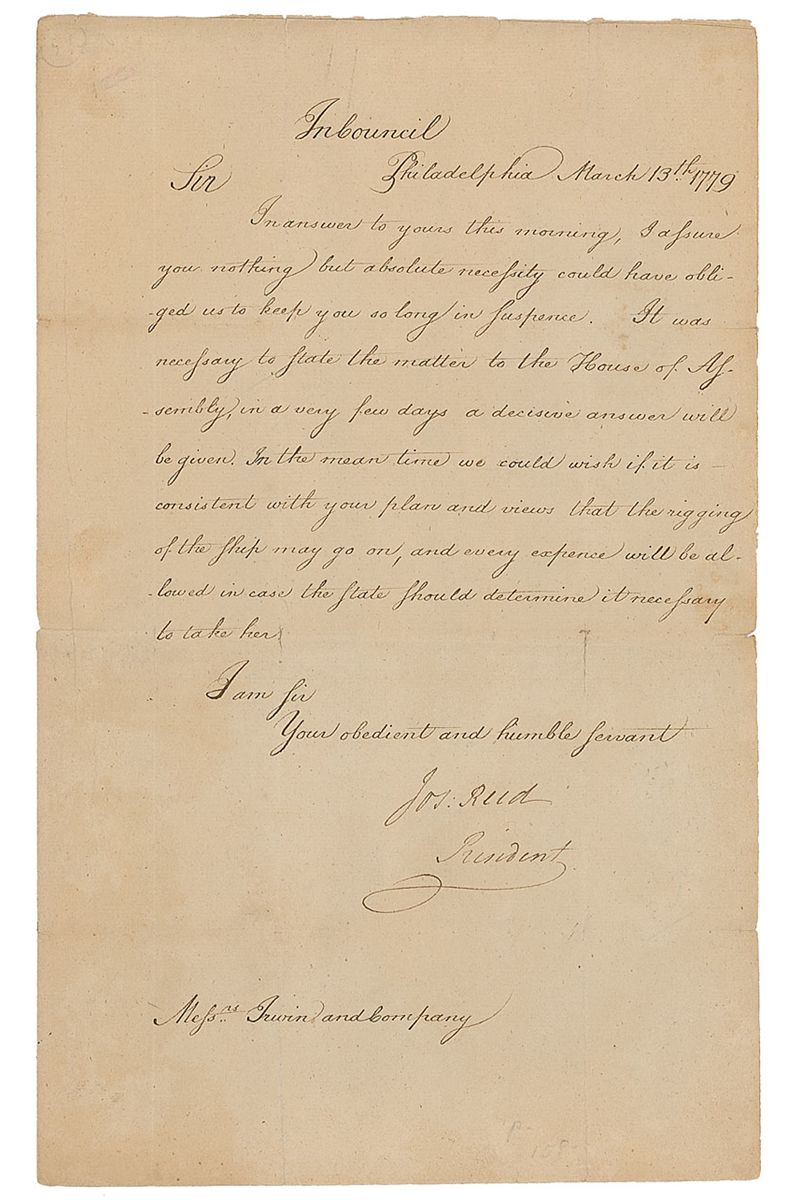 In Council
Philadelphia March 13th. 1779
Sir
In answer to yours this morning, I assure
you nothing but absolute necessity could have obli-
-ged us to keep you so long in suspence. It was
necessary to state the matter to the House of As-
-sembly, in a very few days a decisive answer will
be given. In the mean time we could wish if it is
consistent with your plan and views that the rigging
of the ship may go on, and every expence will be al-
-lowed in case the state should determine it necessary
to take her
I am Sir
Your obedient and humble servant
Jos: Reed
President
Messrs. Irwin and Company
p
158